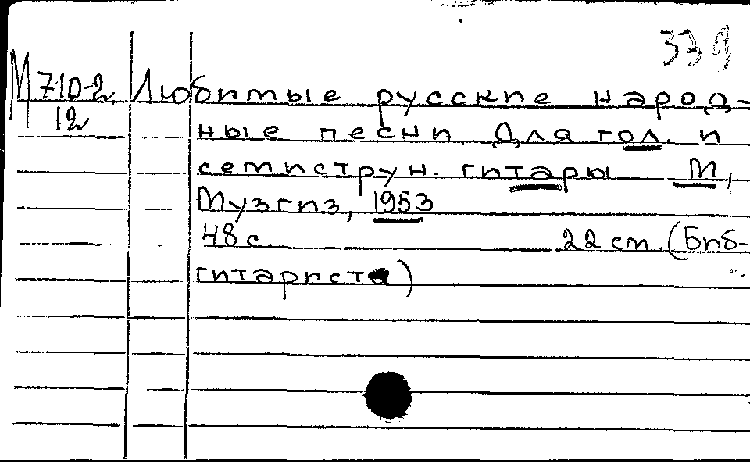 339
М 710-2
12
Любимые русские народ-
ные песни. Для гол. и
семиструн. гитары М,
Музгиз, 1953
48 с. 22 cm (Биб-
гитариста)